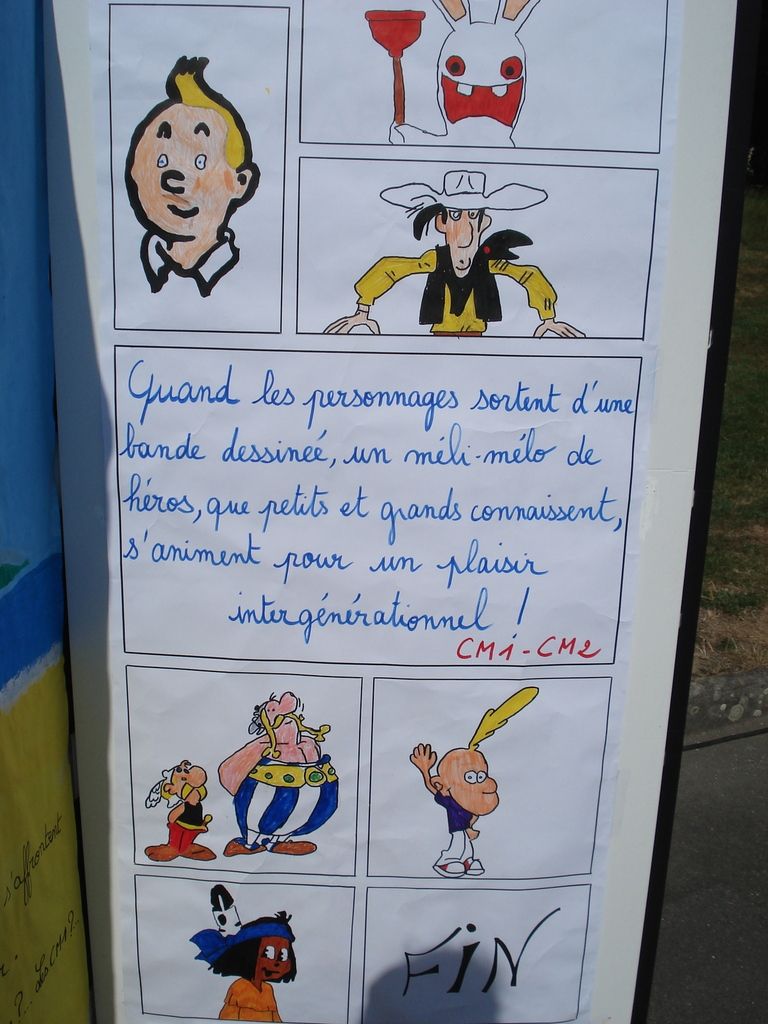 Quand les personnages sortent d'une
bande dessineé, un méli-mélo de
héros, que petits et grands connaissent,
s'animent pour un plaisir
intergénérationnel !
CM1-CM2
FiN
s'affrontent
?... Les CM1?...